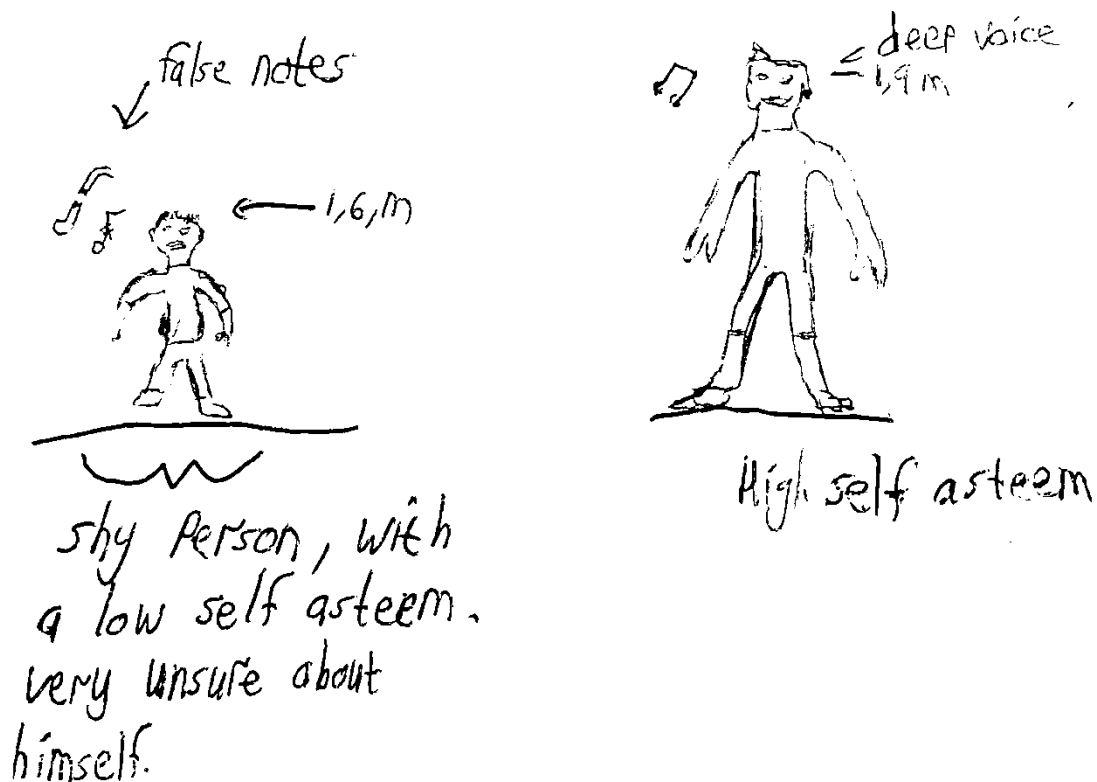 false notes
1,6,m
shy Person, with
a low self asteem.
very unsure about
himself.
deep voice
1,9 m
High self asteem